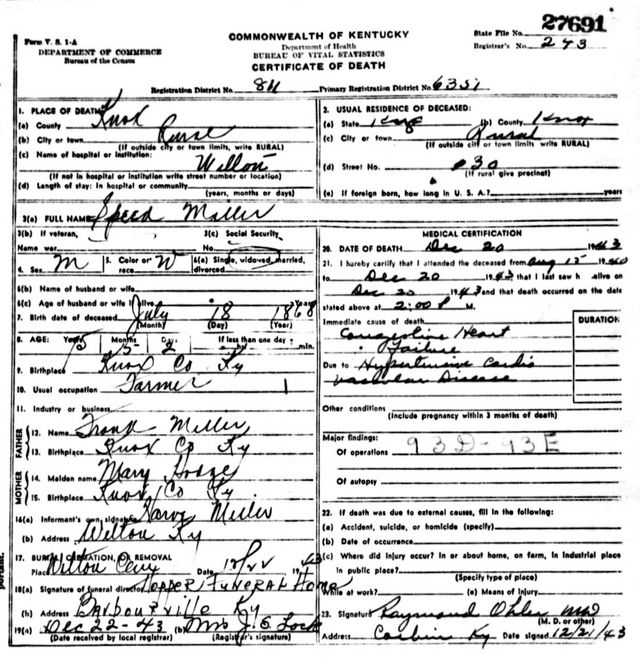 27691
Form V. S. 1-A
DEPARTMENT OF COMMERCE
Bureau of the Census
COMMONWEALTH OF KENTUCKY
Department of Health
BUREAU OF VITAL STATISTICS
CERTIFICATE OF DEATH
State File No.
Registrar's No. 243
Registration District No. Primary Registration District No. 6351
1. PLACE OF DEATH
(a) County Knox
(b) City or town Rural
(If outside city or town limits, write RURAL)
(c) Name of hospital or institution: Wilton
(If not in hospital or institution write street number or location)
(d) Length of stay: In hospital or community
(years, months or days)
2. USUAL RESIDENCE OF DECEASED:
(a) State (b) County Knox
(c) City or town Rural
(If outside city or town limits write RURAL)
(d) Street No. 030
(If rural give precinct)
(e) If foreign born, how long in U. S. A.? years
3(a) FULL NAME Speed Miller
3(b) If veteran, 3(c) Social Security
Name war No.
4. Sex M 5. Color or race W 6(a) Single, widowed, married, divorced
6(b) Name of husband or wife
6(c) Age of husband or wife if alive
7. Birth date of deceased July 18 1868
(Month) (Day) (Year)
8. AGE: Years 75 Months 5 Days 2 If less than one day
hr. min.
9. Birthplace Knox Co Ky
10. Usual occupation Farmer 1
11. Industry or business
FATHER
12. Name Frank Miller
13. Birthplace Knox Co Ky
MOTHER
14. Maiden name Mary
15. Birthplace Knox Co Ky
16(a) Informant's own signature Miller
(b) Address Wilton Ky
17. BURIAL, CREMATION, OR REMOVAL
Place Wilton Cem Date 12/22 1943
18(a) Signature of funeral director Hopper Funeral Home
(b) Address Barbourville Ky
19(a) Dec 22-43 (b) Mrs J. E. Lock
(Date received by local registrar) (Registrar's signature)
MEDICAL CERTIFICATION
20. DATE OF DEATH Dec 20 1943
21. I hereby certify that I attended the deceased from Aug 15 1940
to Dec 20 1943 that I last saw h alive on
Dec 20 1943 and that death occurred on the date
stated above at 2:00 P M.
Immediate cause of death
Congestive Heart
Failure
Due to Hypertensive Cardio
Vascular Disease
DURATION
Other conditions
(Include pregnancy within 3 months of death)
Major findings: 93D-93E
Of operations
Of autopsy
22. If death was due to external causes, fill in the following:
(a) Accident, suicide, or homicide (specify)
(b) Date of occurrence
(c) Where did Injury occur? In or about home, on farm, in Industrial place
in public place?
(Specify type of place)
While at work? (e) Means of Injury
23. Signature Raymond MD
(M. D. or other)
Address Corbin Ky Date signed 12/21/43